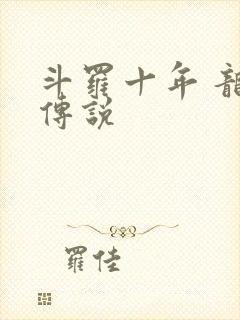 斗羅十年 龍
傳説
羅佳